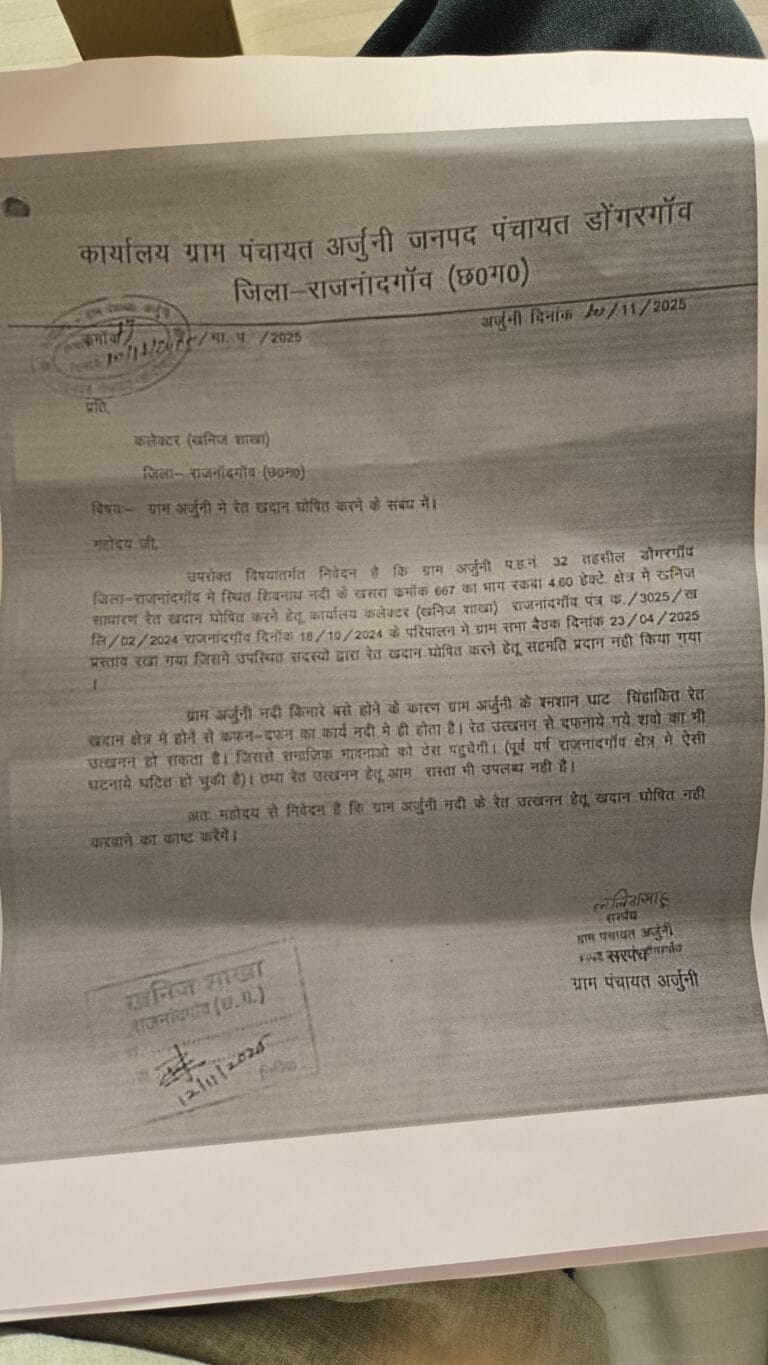 कार्यालय ग्राम पंचायत अर्जुनी जनपद पंचायत डोंगरगॉव
जिला–राजनांदगॉव (छ0ग0)
अर्जुनी दिनांक 10/11/2025
/ग्रा. प. /2025
प्रति,
कलेक्टर (खनिज शाखा)
जिला– राजनॉदगॉव (छ0ग0)
विषयः– ग्राम अर्जुनी मे रेत खदान घोषित करने के संबंध में।
महोदय जी,
उपरोक्त विषयांतर्गत निवेदन है कि ग्राम अर्जुनी प.ह.नं. 32 तहसील डोंगरगॉव
जिला–राजनांदगॉव मे स्थित शिवनाथ नदी के खसरा कमॉक 667 का भाग रकबा 4.60 हेक्टे. क्षेत्र मे खनिज
साधारण रेत खदान घोषित करने हेतू कार्यालय कलेक्टर (खनिज शाखा) राजनांदगॉव पत्र क./3025/ख
लि/02/2024 राजनांदगॉव दिनॉक 18/10/2024 के परिपालन मे ग्राम सभा बैठक दिनांक 23/04/2025
प्रस्ताव रखा गया जिसमे उपस्थित सदस्यो द्वारा रेत खदान घोषित करने हेतू सहमति प्रदान नही किया गया
।
ग्राम अर्जुनी नदी किनारे बसे होने के कारण ग्राम अर्जुनी के श्मशान घाट चिंहाकित रेत
खदान क्षेत्र मे होने से कफन–दफन का कार्य नदी मे ही होता है। रेत उत्खनन से दफनाये गये शवो का भी
उत्खनन हो सकता है। जिससे समाजिक भावनाओ को ठेस पहुचेगी। (पूर्व वर्ष राजनांदगॉव क्षेत्र मे ऐसी
घटनाये घटित हो चुकी है)। तथा रेत उत्खनन हेतू आम रास्ता भी उपलब्ध नही है।
अतः महोदय से निवेदन है कि ग्राम अर्जुनी नदी के रेत उत्खनन हेतू खदान घोषित नही
करवाने का काष्ट करेंगे।
सरपंच
ग्राम पंचायत अर्जुनी
सरपंच
ग्राम पंचायत अर्जुनी
खनिज शाखा
राजनांदगॉव (छ.ग.)
12/11/2025